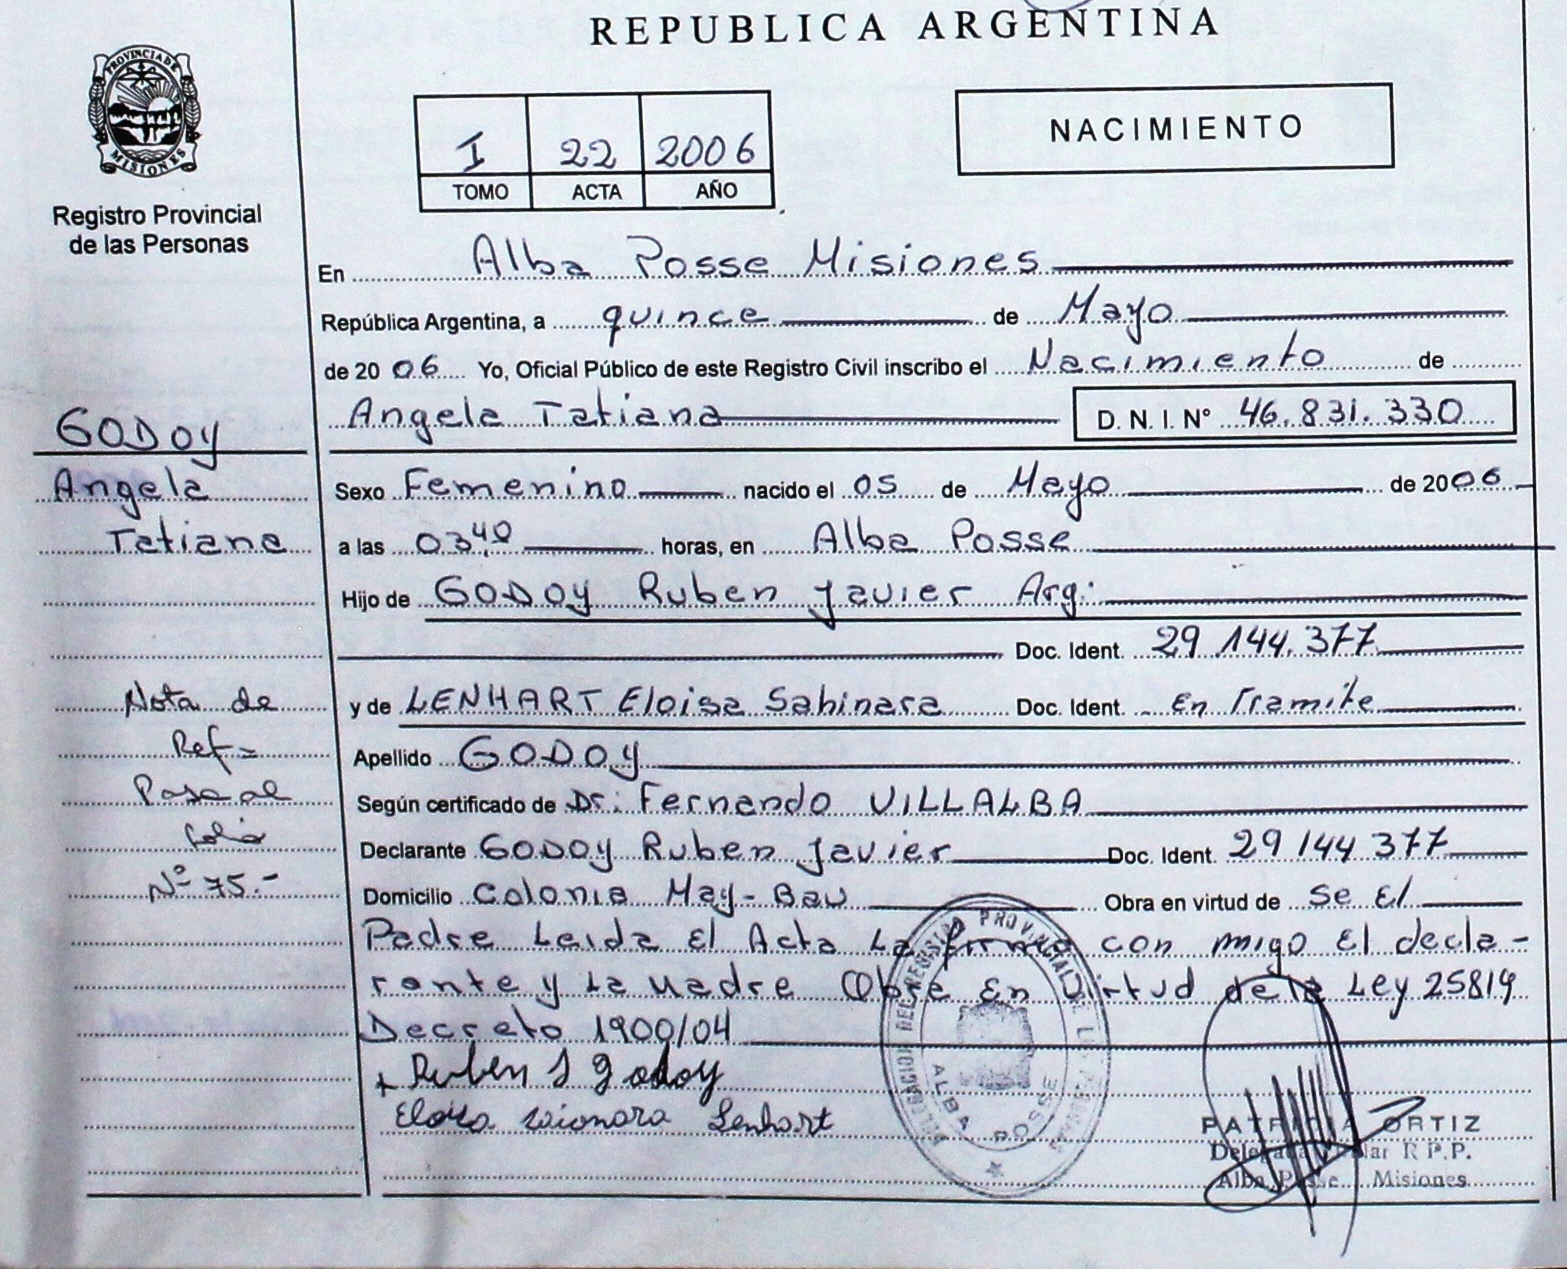 REPUBLICA ARGENTINA
PROVINCIA DE
MISIONES
Registro Provincial
de las Personas
I 22 2006
TOMO ACTA AÑO
NACIMIENTO
En Alba Posse Misiones
República Argentina, a quince de Mayo
de 2006 Yo, Oficial Público de este Registro Civil inscribo el Nacimiento de
Angela Tatiana D. N. I. N° 46.831.330
Sexo Femenino nacido el 05 de Mayo de 2006
a las 03,40 horas, en Alba Posse
Hijo de GODOY Ruben Javier Arg:
Doc. Ident. 29 144.377
y de LENHART Eloisa Sahinara Doc. Ident. En Tramite
Apellido GODOY
Según certificado de Dr: Fernando VILLALBA
Declarante GODOY Ruben Javier Doc. Ident. 29 144 377
Domicilio Colonia May-Bau Obra en virtud de se El
Padre Leida El Acta La firma con migo El decla-
rante y La Madre Obre En Virtud de la Ley 25819
Decreto 1900/04
+ Ruben J Godoy
Lenhart
GODOY
Angela
Tatiana
Nota de
Ref=
Pasa al
folio
N° 75.-
DELEGACION DEL REGISTRO PROVINCIAL DE LAS PERSONAS
ALBA POSSE
PATRICIA ORTIZ
Delegada Titular R.P.P.
Alba Posse Misiones